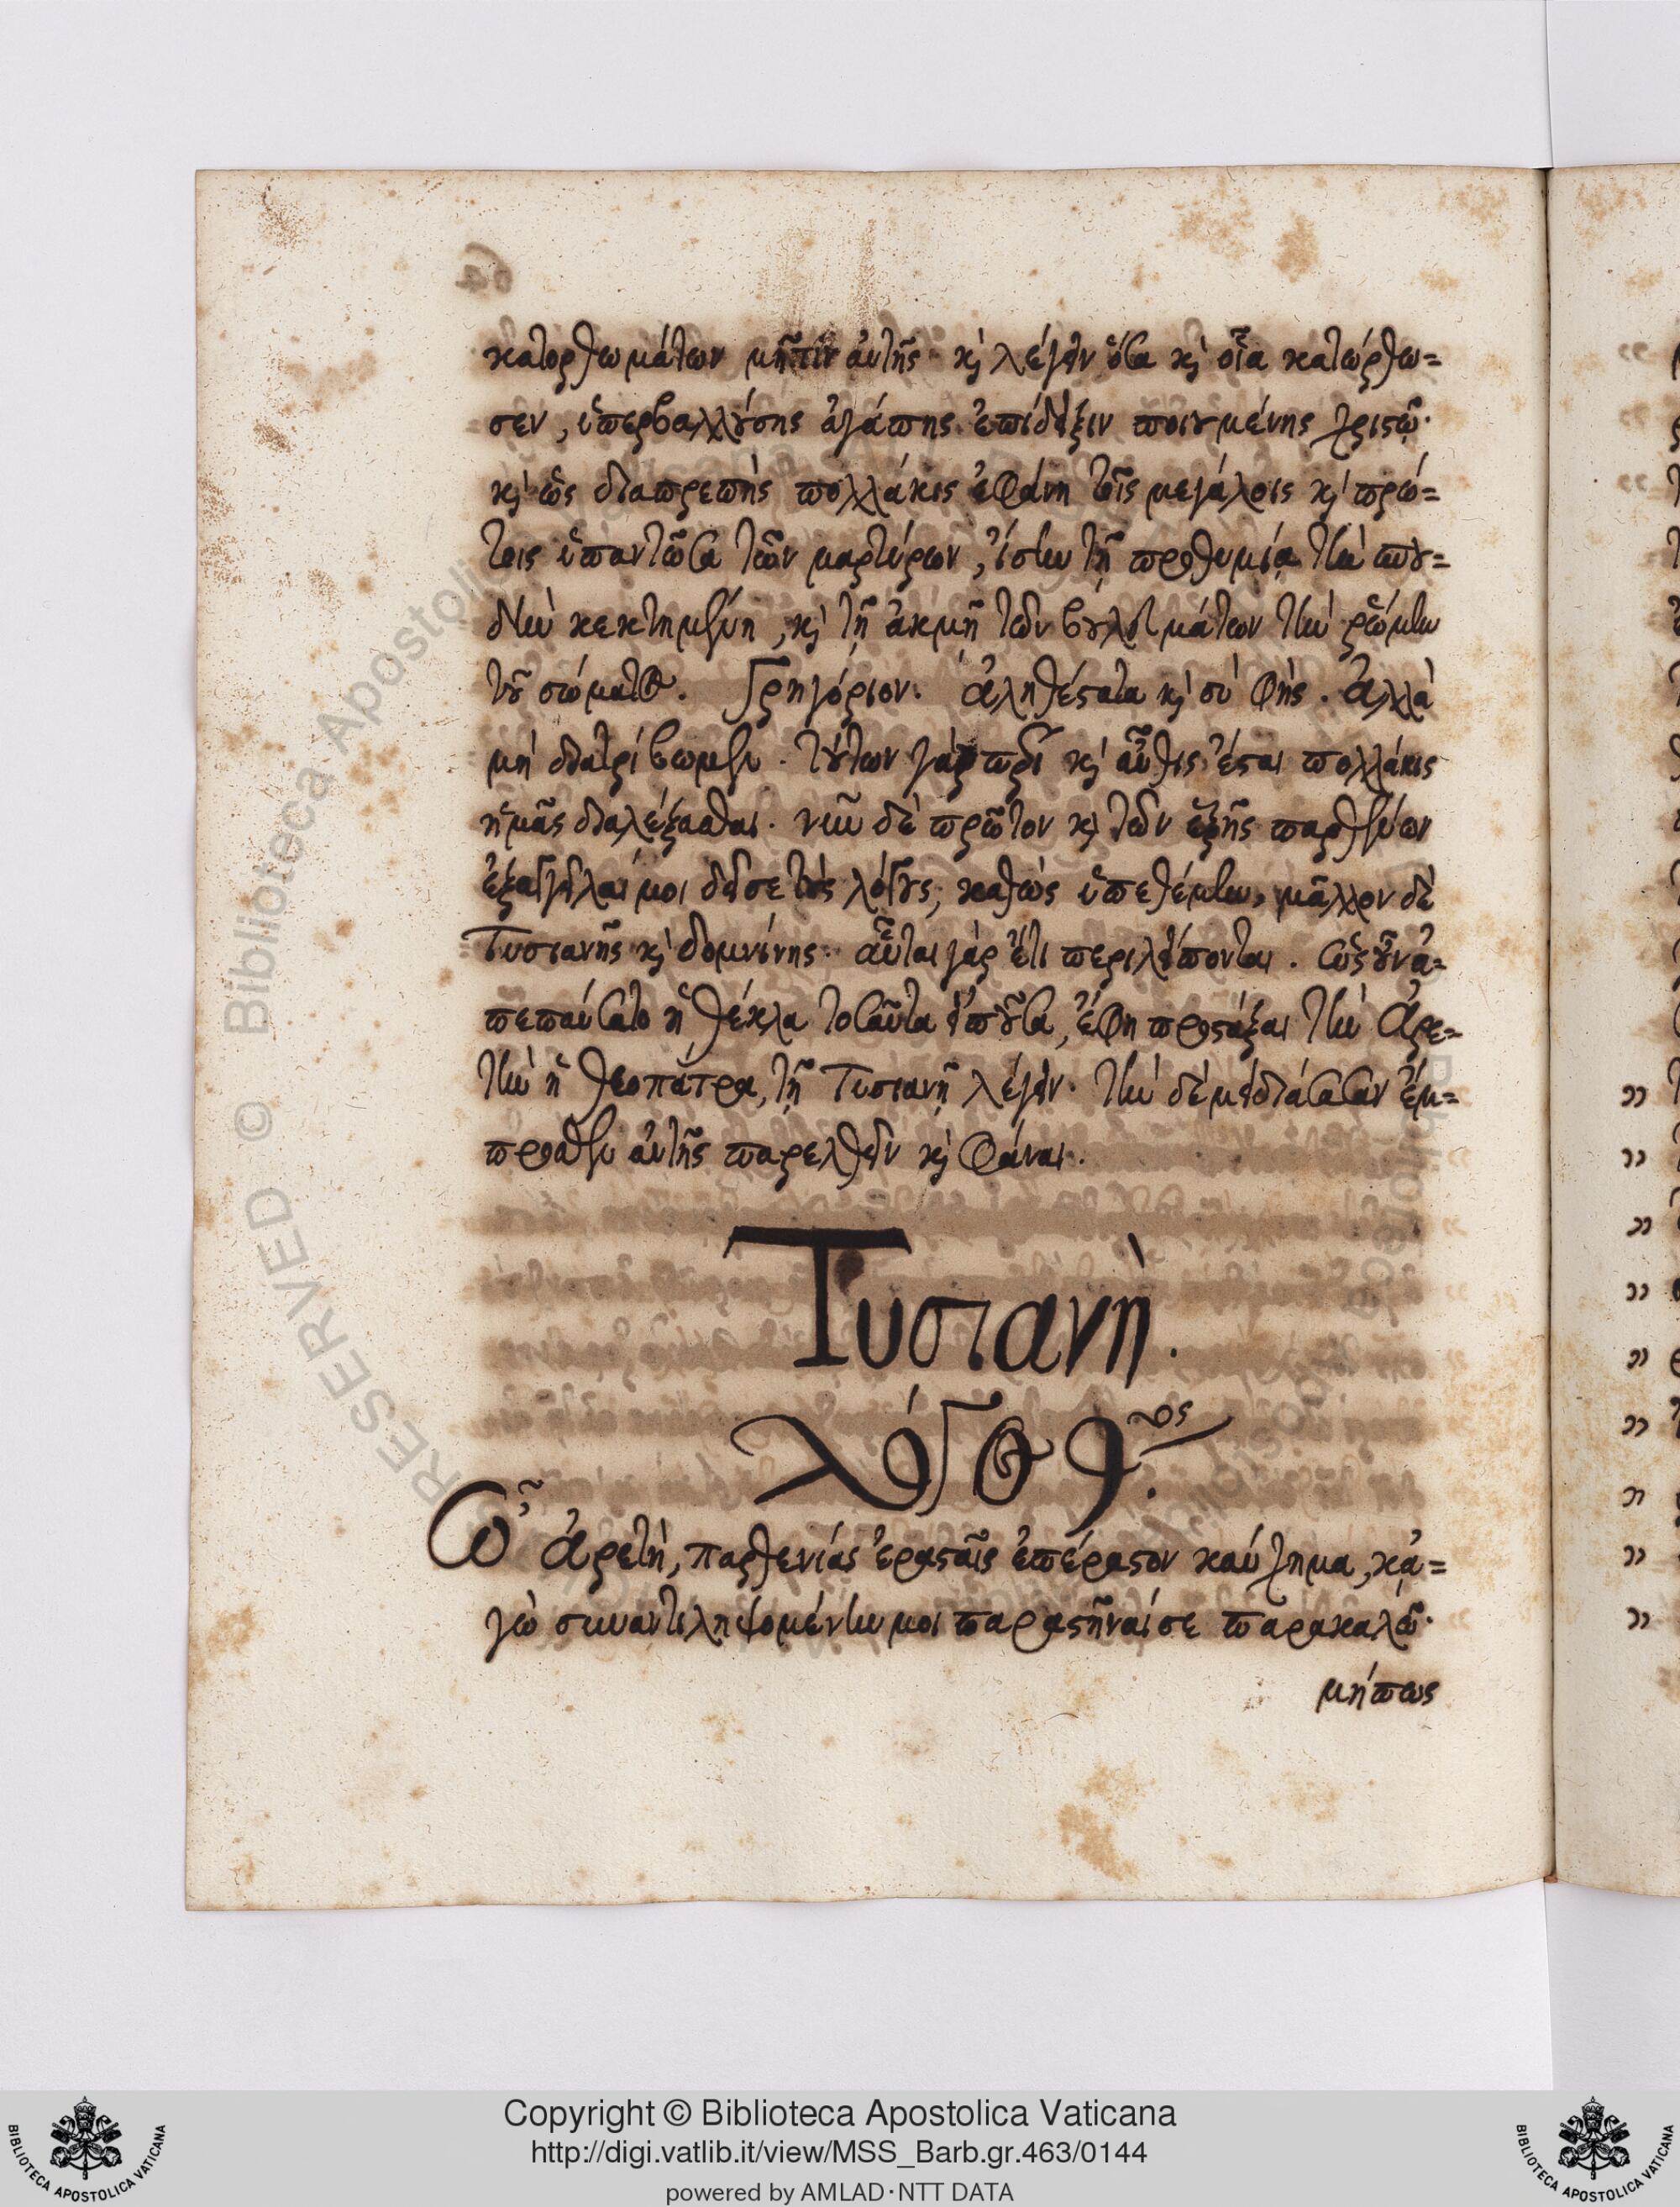 κατορθωμάτων μῆτιν αὐτῆς κ̀ λέγειν ὅσα κ̀ οἷα κατώρθω=
σεν, ὑπερβαλλούσης ἀγάπης ἐπίδειξιν ποιουμένης χριστῷ·
κ̀ ὡς διαπρεπὴς πολλάκις ἐφάνη τοῖς μεγάλοις κ̀ πρώ=
τοις ὑπαντῶσα τῶν μαρτύρων, ἴσην τῇ προθυμίᾳ τὴν σπου=
δὴν κεκτημένη, κ̀ τῇ ἀκμῇ τῶν βουλευμάτων τὴν ῥώμην
τοῦ σώματος. Γρηγόριον. ἀληθέστατα κ̀ σὺ φῄς. ἀλλὰ
μὴ διατρίβωμεν. τούτων γὰρ περὶ κ̀ αὖθις ἔσται πολλάκις
ἡμᾶς διαλέξασθαι. νῦν δὲ πρῶτον κ̀ τῶν ἑξῆς παρθένων
ἐξαγγεῖλαί μοι δεῖ σε τοὺς λόγους, καθὼς ὑπεθέμην, μᾶλλον δὲ
Τυσιανῆς κ̀ δομνίνης. αὗται γὰρ ἔτι περιλείπονται. ὡς οὖν ἀ=
πεπαύσατο ἡ θέκλα τοσαῦτα εἰποῦσα, ἔφη προστάξαι τὴν Ἀρε=
τὴν ἡ θεοπάτρα, τῇ Τυσιανῇ λέγειν. τὴν δὲ μειδιάσασαν ἔμ=
προσθεν αὐτῆς παρελθεῖν κ̀ φάναι.
Τυσιανὴ.
λόγος θ.ος
Ὦ ἀρετὴ, παρθενίας ἐρασταῖς ἐπέραστον καύχημα, κἀ=
γὼ συναντιληψομένην μοι παραστῆναί σε παρακαλῶ·
μήπως
Copyright © Biblioteca Apostolica Vaticana
http://digi.vatlib.it/view/MSS_Barb.gr.463/0144
powered by AMLAD·NTT DATA
BIBLIOTECA APOSTOLICA VATICANA
BIBLIOTECA APOSTOLICA VATICANA